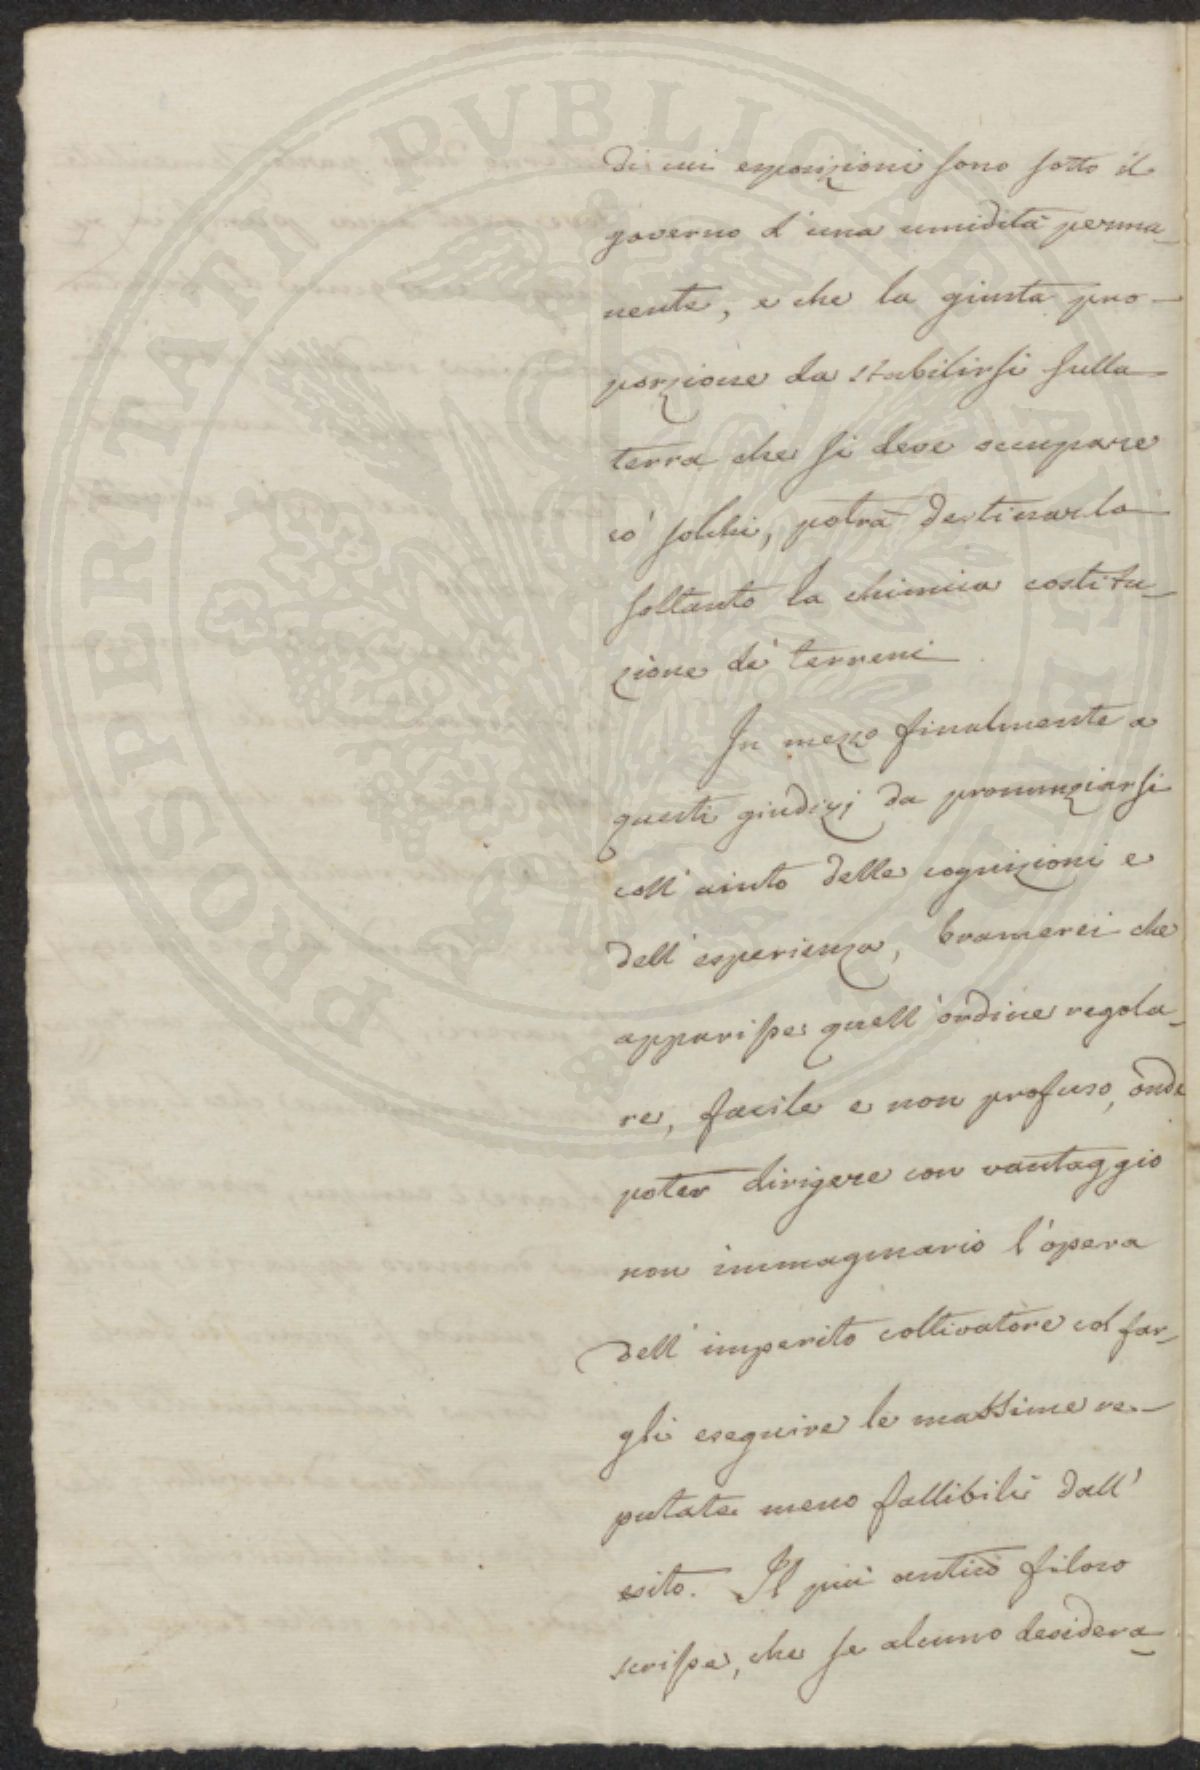 di cui esposizioni sono sotto il
governo d'una umidità perma-
nente, e che la giusta pro-
porzione da stabilirsi sulla
terra che si deve occupare
co' solchi, potrà destinarla
soltanto la chimica costitu-
zione de' terreni
In mezzo finalmente a
questi giudizj da pronunziarsi
coll' aiuto delle cognizioni e
dell' esperienza, bramerei che
apparisse quell' ordine regola-
re, facile e non profuso, onde
poter dirigere con vantaggio
non immaginario l'opera
dell' imperito coltivatore col far-
gli eseguire le massime re-
putate meno fallibili dall'
esito. Il più antico filoso
scrisse, che se alcuno desidera-
PROSPERITATI PVBLICAE